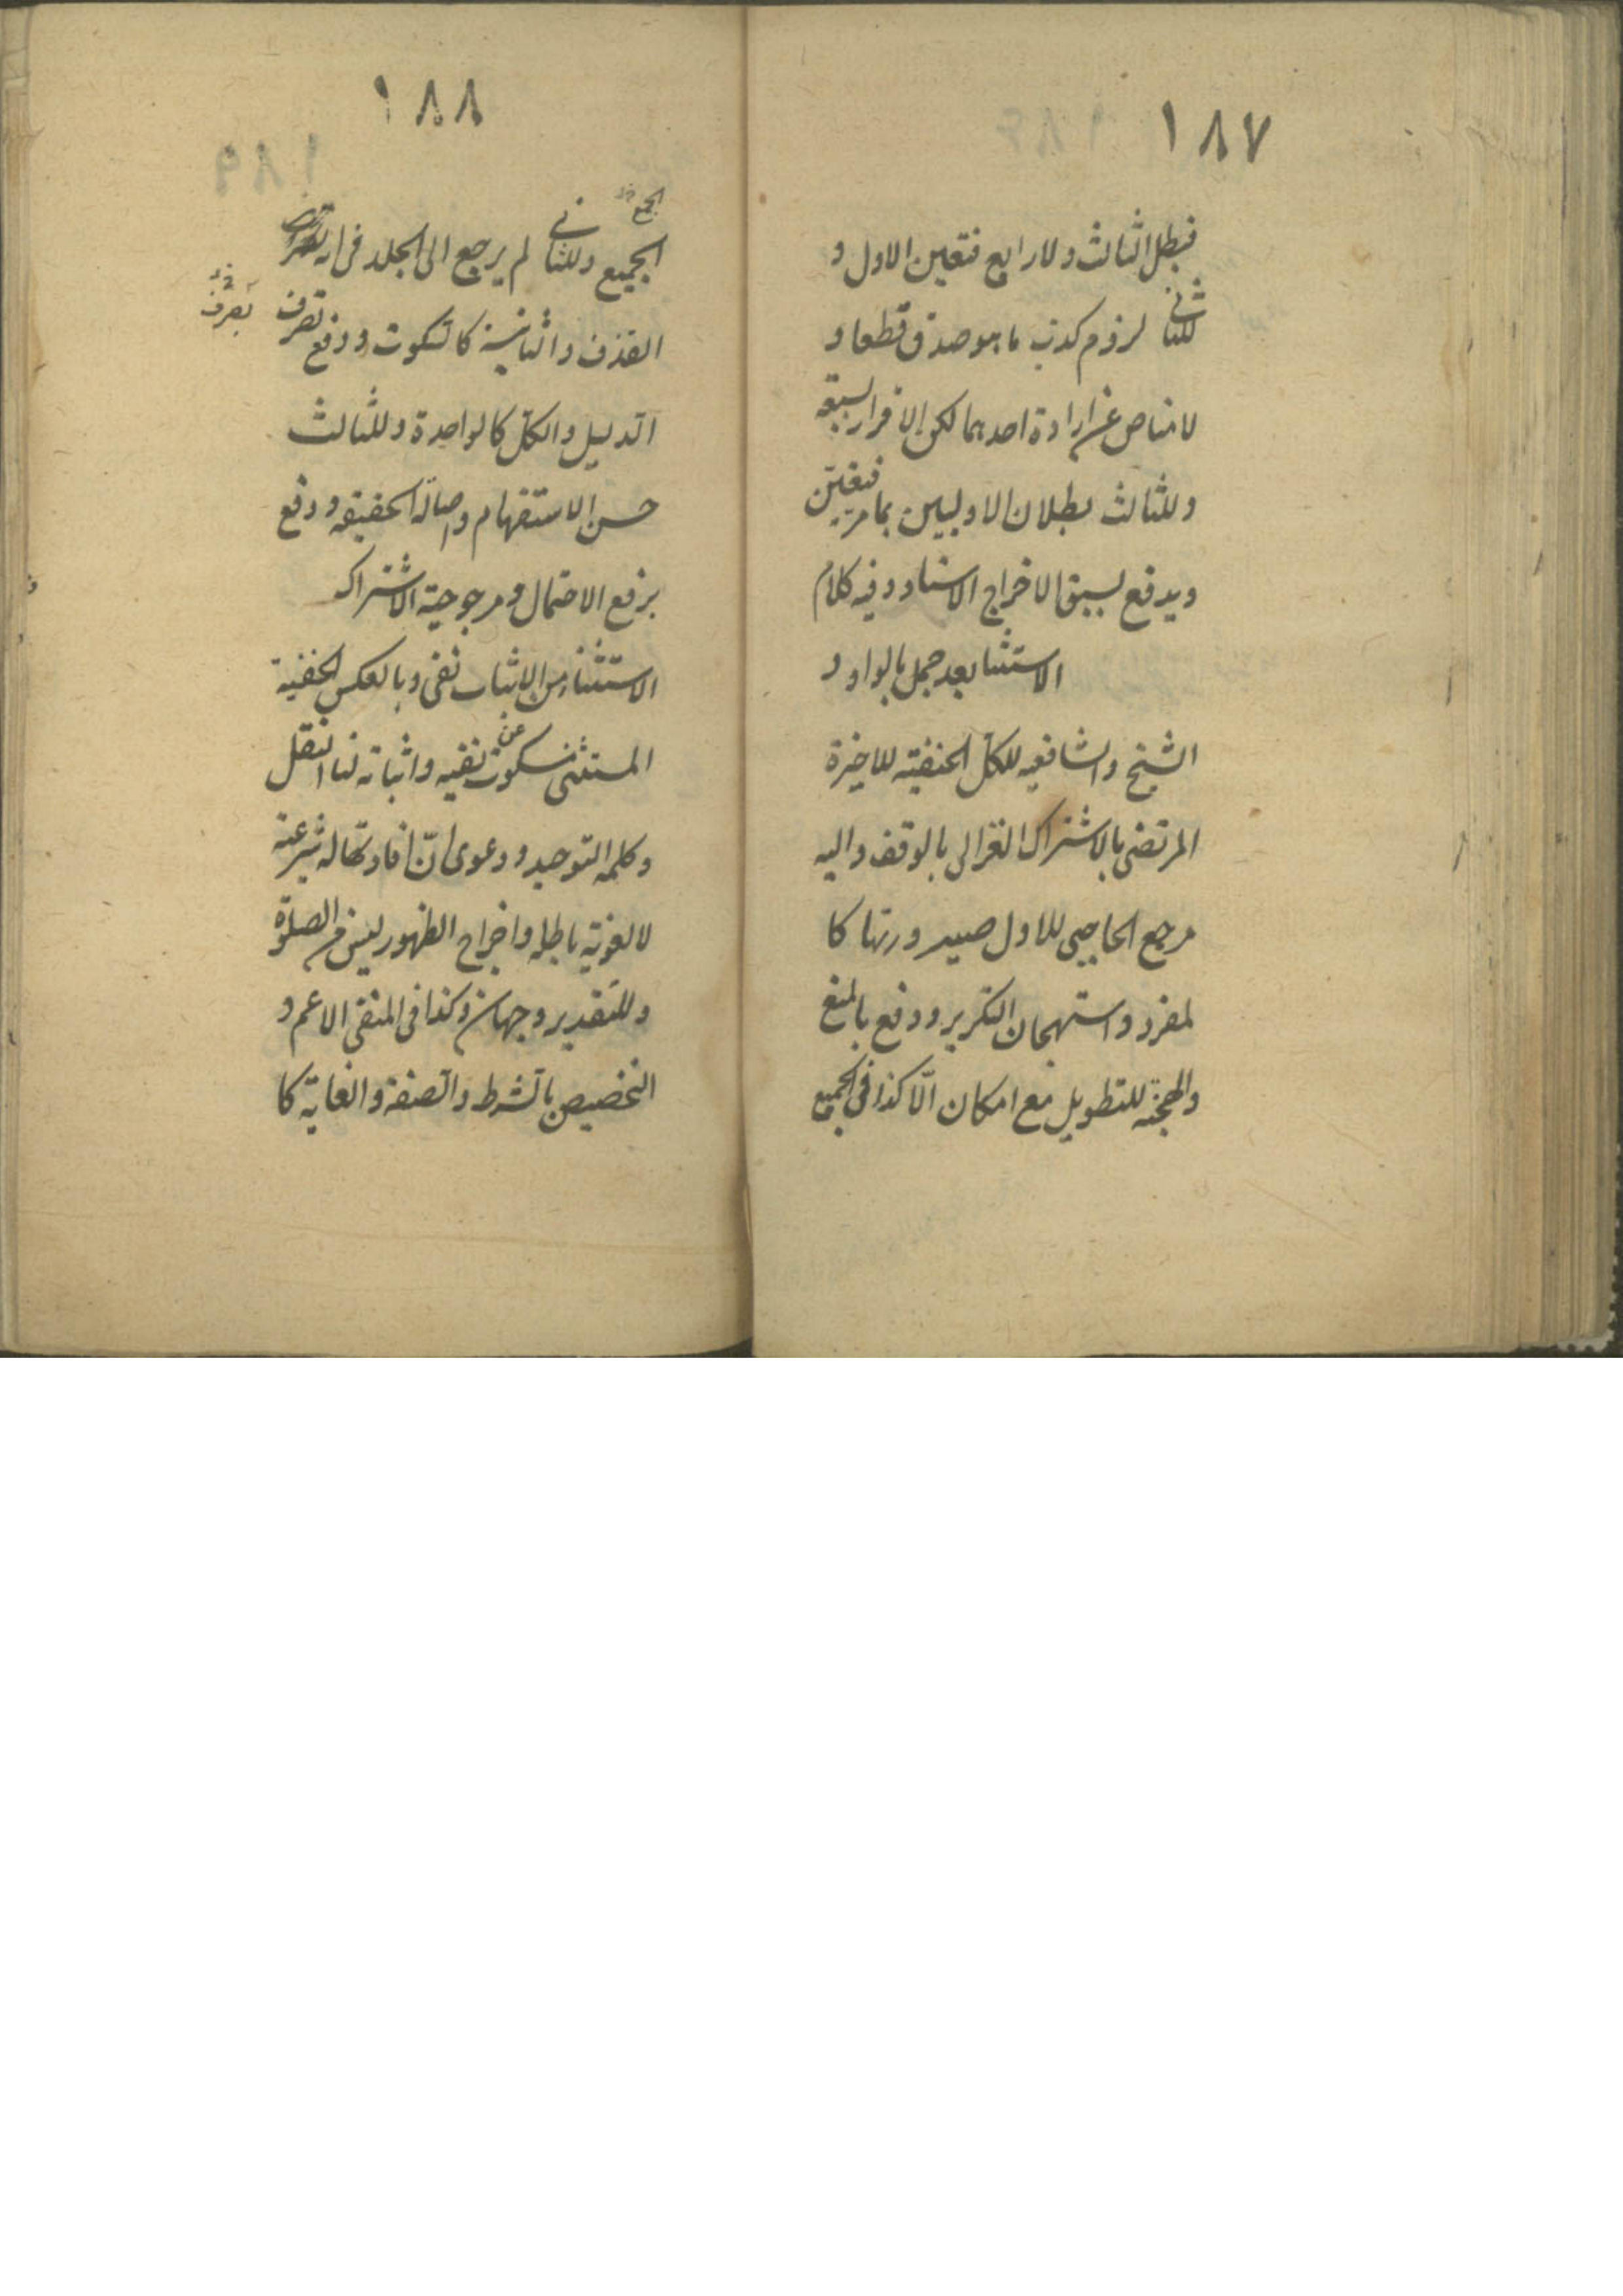 ١٨٧
فبطل الثالث ولا رابع فتعين الاول و
للثاني لزوم كذب ما هو صدق قطعا و
لا مناص عن ارادة احدهما لكن الاقرار لسبقه
وللثالث بطلان الاوليين بما مر فتعين
ويدفع لسبق الاخراج الاسناد وفيه كلام
الاستثنا بعد جمل بالواو و
الشيخ والشافعيه للكل الحنفيته للاخيرة
المرتضى بالاشتراك الغزالى بالوقف واليه
مرجع الحاجبى للاول صيرورتها كا
لمفرد واستهجان التكرير ودفع بالمنع
والهجنه للتطويل مع امكان الّا كذا فى الجميع
١٨٨
الجميع وللثاني لم يرجع الى الجلد فى اية
الجمع خ
القذف والثانية كالسكوت ودفع تصرف
يصرف خ
الدليل والكل كالواحدة وللثالث
حسن الاستفهام واصالة الحقيقه ودفع
برفع الاحتمال ومرجوحية الاشتراك
الاستثناء من الاثبات نفى وبالعكس الحنفية
المستثنى مسكوت عن نفيه واثباته لنا النقل
وكلمه التوحيد ودعوى انّ افادتها له شرعية
لا لغوية باطله واخراج الطهور ليس من الصلوة
وللتقدير وجهان وكذا فى المنفى الاعم و
التخصيص بالشرط والصفة والغاية كا